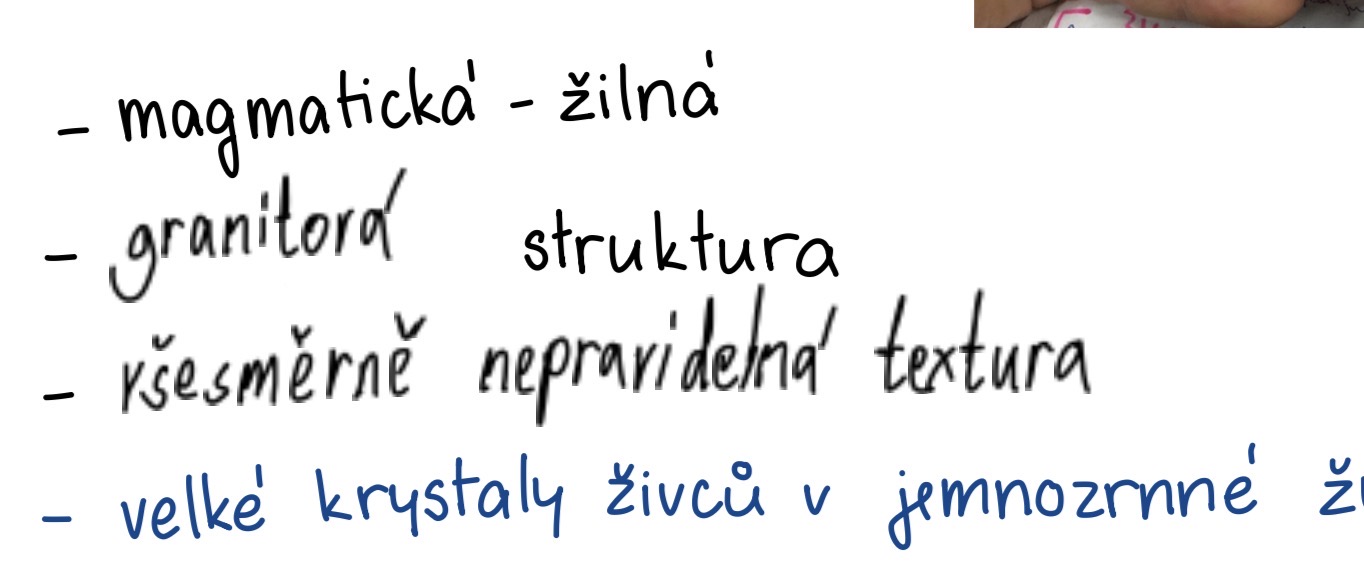 - magmatická - žilná
- granitová struktura
- všesměrně nepravidelná textura
- velké krystaly živců v jemnozrnné